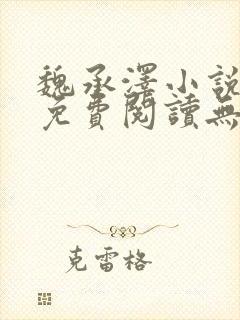 魏承澤小說
免費閱讀無
克雷格